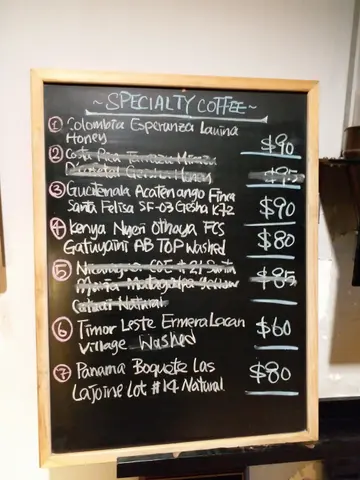 ~SPECIALTY COFFEE~
① Colombia Esperanza Lavina
Honey $90
② Costa Rica Tarrazu
Honey $95
③ Guatemala Acatenango Finca
Santa Felisa SF-03 Gesha K72 $90
④ Kenya Nyeri Othaya FCS
Gatuyaini AB TOP Washed $80
⑤ Nicaragua COE #21 Santa
Maria Matagalpa Yellow $85
Catuai Natural
⑥ Timor Leste Ermera Lacau
Village Washed $60
⑦ Panama Boquete Las
Lajoine Lot #14 Natural $80